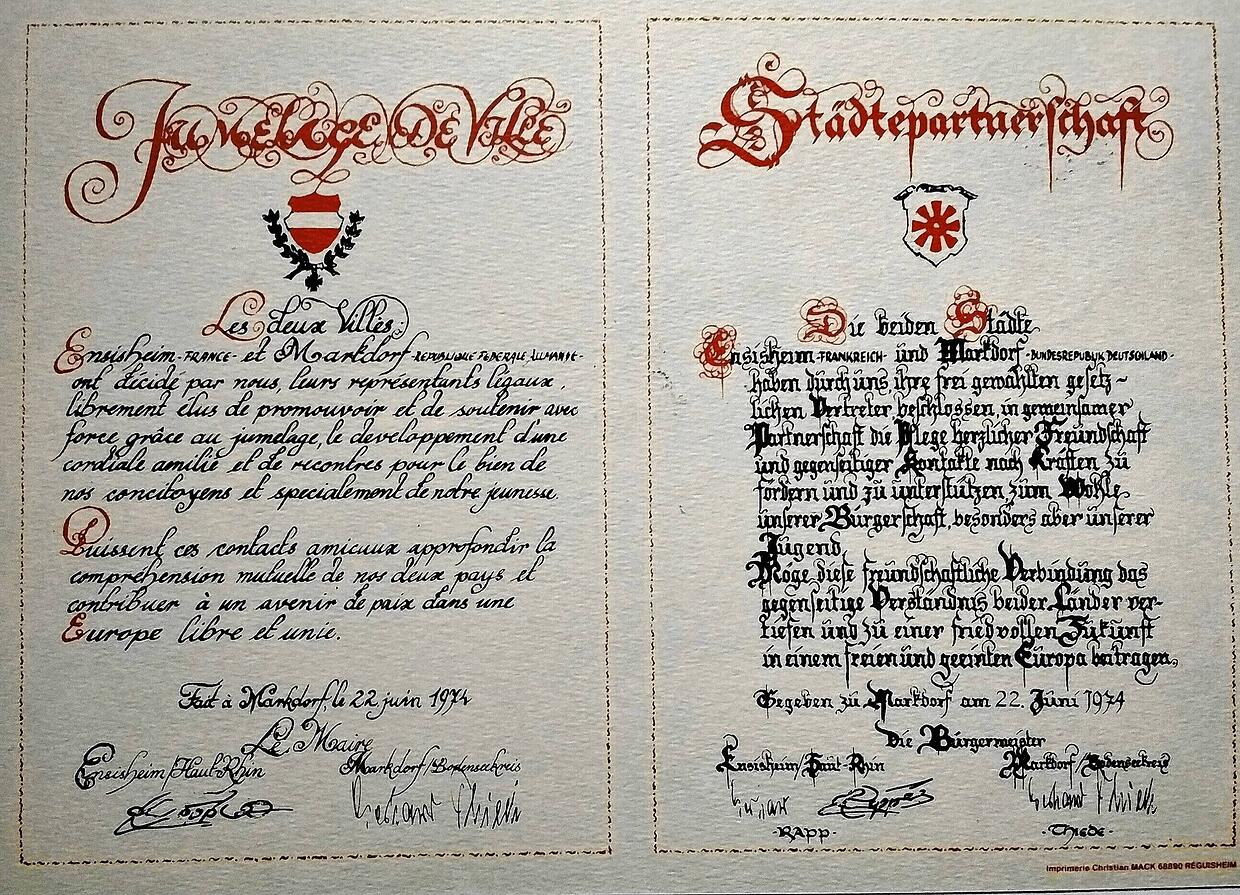 Jumelage de Ville
Les deux Villes:
Ensisheim-FRANCE- et Markdorf REPUBLIQUE FEDERALE ALLEMANDE-
ont décidé par nous, leurs représentants légaux,
librement élus de promouvoir et de soutenir avec
force grâce au jumelage, le developpement d'une
cordiale amilié et de recontres pour le bien de
nos concitoyens et specialement de notre jeunesse.
Puissent ces contacts amicaux approfondir la
compréhension mutuelle de nos deux pays et
contribuer à un avenir de paix dans une
Europe libre et unie.
Fait à Markdorf, le 22 juin 1974
Le Maire
Ensisheim/Haut-Rhin Markdorf/Bodenseekreis
Städtepartnerschaft
Die beiden Städte
Ensisheim-FRANKREICH- und Markdorf-BUNDESREPUBLIK DEUTSCHLAND-
haben durch uns ihre frei gewählten gesetz-
lichen Vertreter beschlossen, in gemeinsamer
Partnerschaft die Pflege herzlicher Freundschaft
und gegenseitiger Kontakte nach Kräften zu
fördern und zu unterstützen zum Wohle
unserer Bürgerschaft, besonders aber unserer
Jugend.
Möge diese freundschaftliche Verbindung das
gegenseitige Verständnis beider Länder ver-
tiefen und zu einer friedvollen Zukunft
in einem freien und geeinten Europa beitragen.
Gegeben zu Markdorf am 22. Juni 1974
Die Bürgermeister
Ensisheim/Haut-Rhin Markdorf/Bodenseekreis
-RAPP- -Thiede-
Imprimerie Christian MACK 68890 RÉGUISHEIM